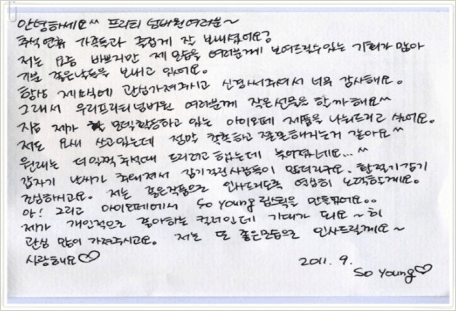 안녕하세요^^ 프리티 넘버원 여러분~
추석 연휴 가족들과 즐겁게 잘 보내셨어요?
저는 요즘 바쁘지만 제 모습을 여러분께 보여드릴수있는 기회가 많아
기분 좋은 날들을 보내고 있어요.
항상 제 소식에 관심가져주시고 신경써주셔서 너무 감사해요.
그래서 우리 프리티넘버원 여러분께 작은 선물을 할까해요^^
지금 제가 모델활동하고 있는 아이오페 제품을 나눠드리고 싶어요.
저도 요새 쓰고있는데 정말 촉촉하고 잘 해지는거 같아요^^
원래는 더 일찍 추석때 드리려고 했는데 늦어졌네요...^^
갑자기 날씨가 추워져서 감기걸린 사람들이 많더라구요. 환절기 감기
조심하시고요. 저는 좋은작품으로 인사드리도록 열심히 노력할게요.
아! 그리고 아이오페에서 So Young 립스틱을 만들었어요..
제가 개인적으로 좋아하는 컬러인데 기대가 되요~히
관심 많이 가져주시고요. 저는 또 좋은모습으로 인사드릴께요~
사랑해요♡
2011. 9.
So Young♡